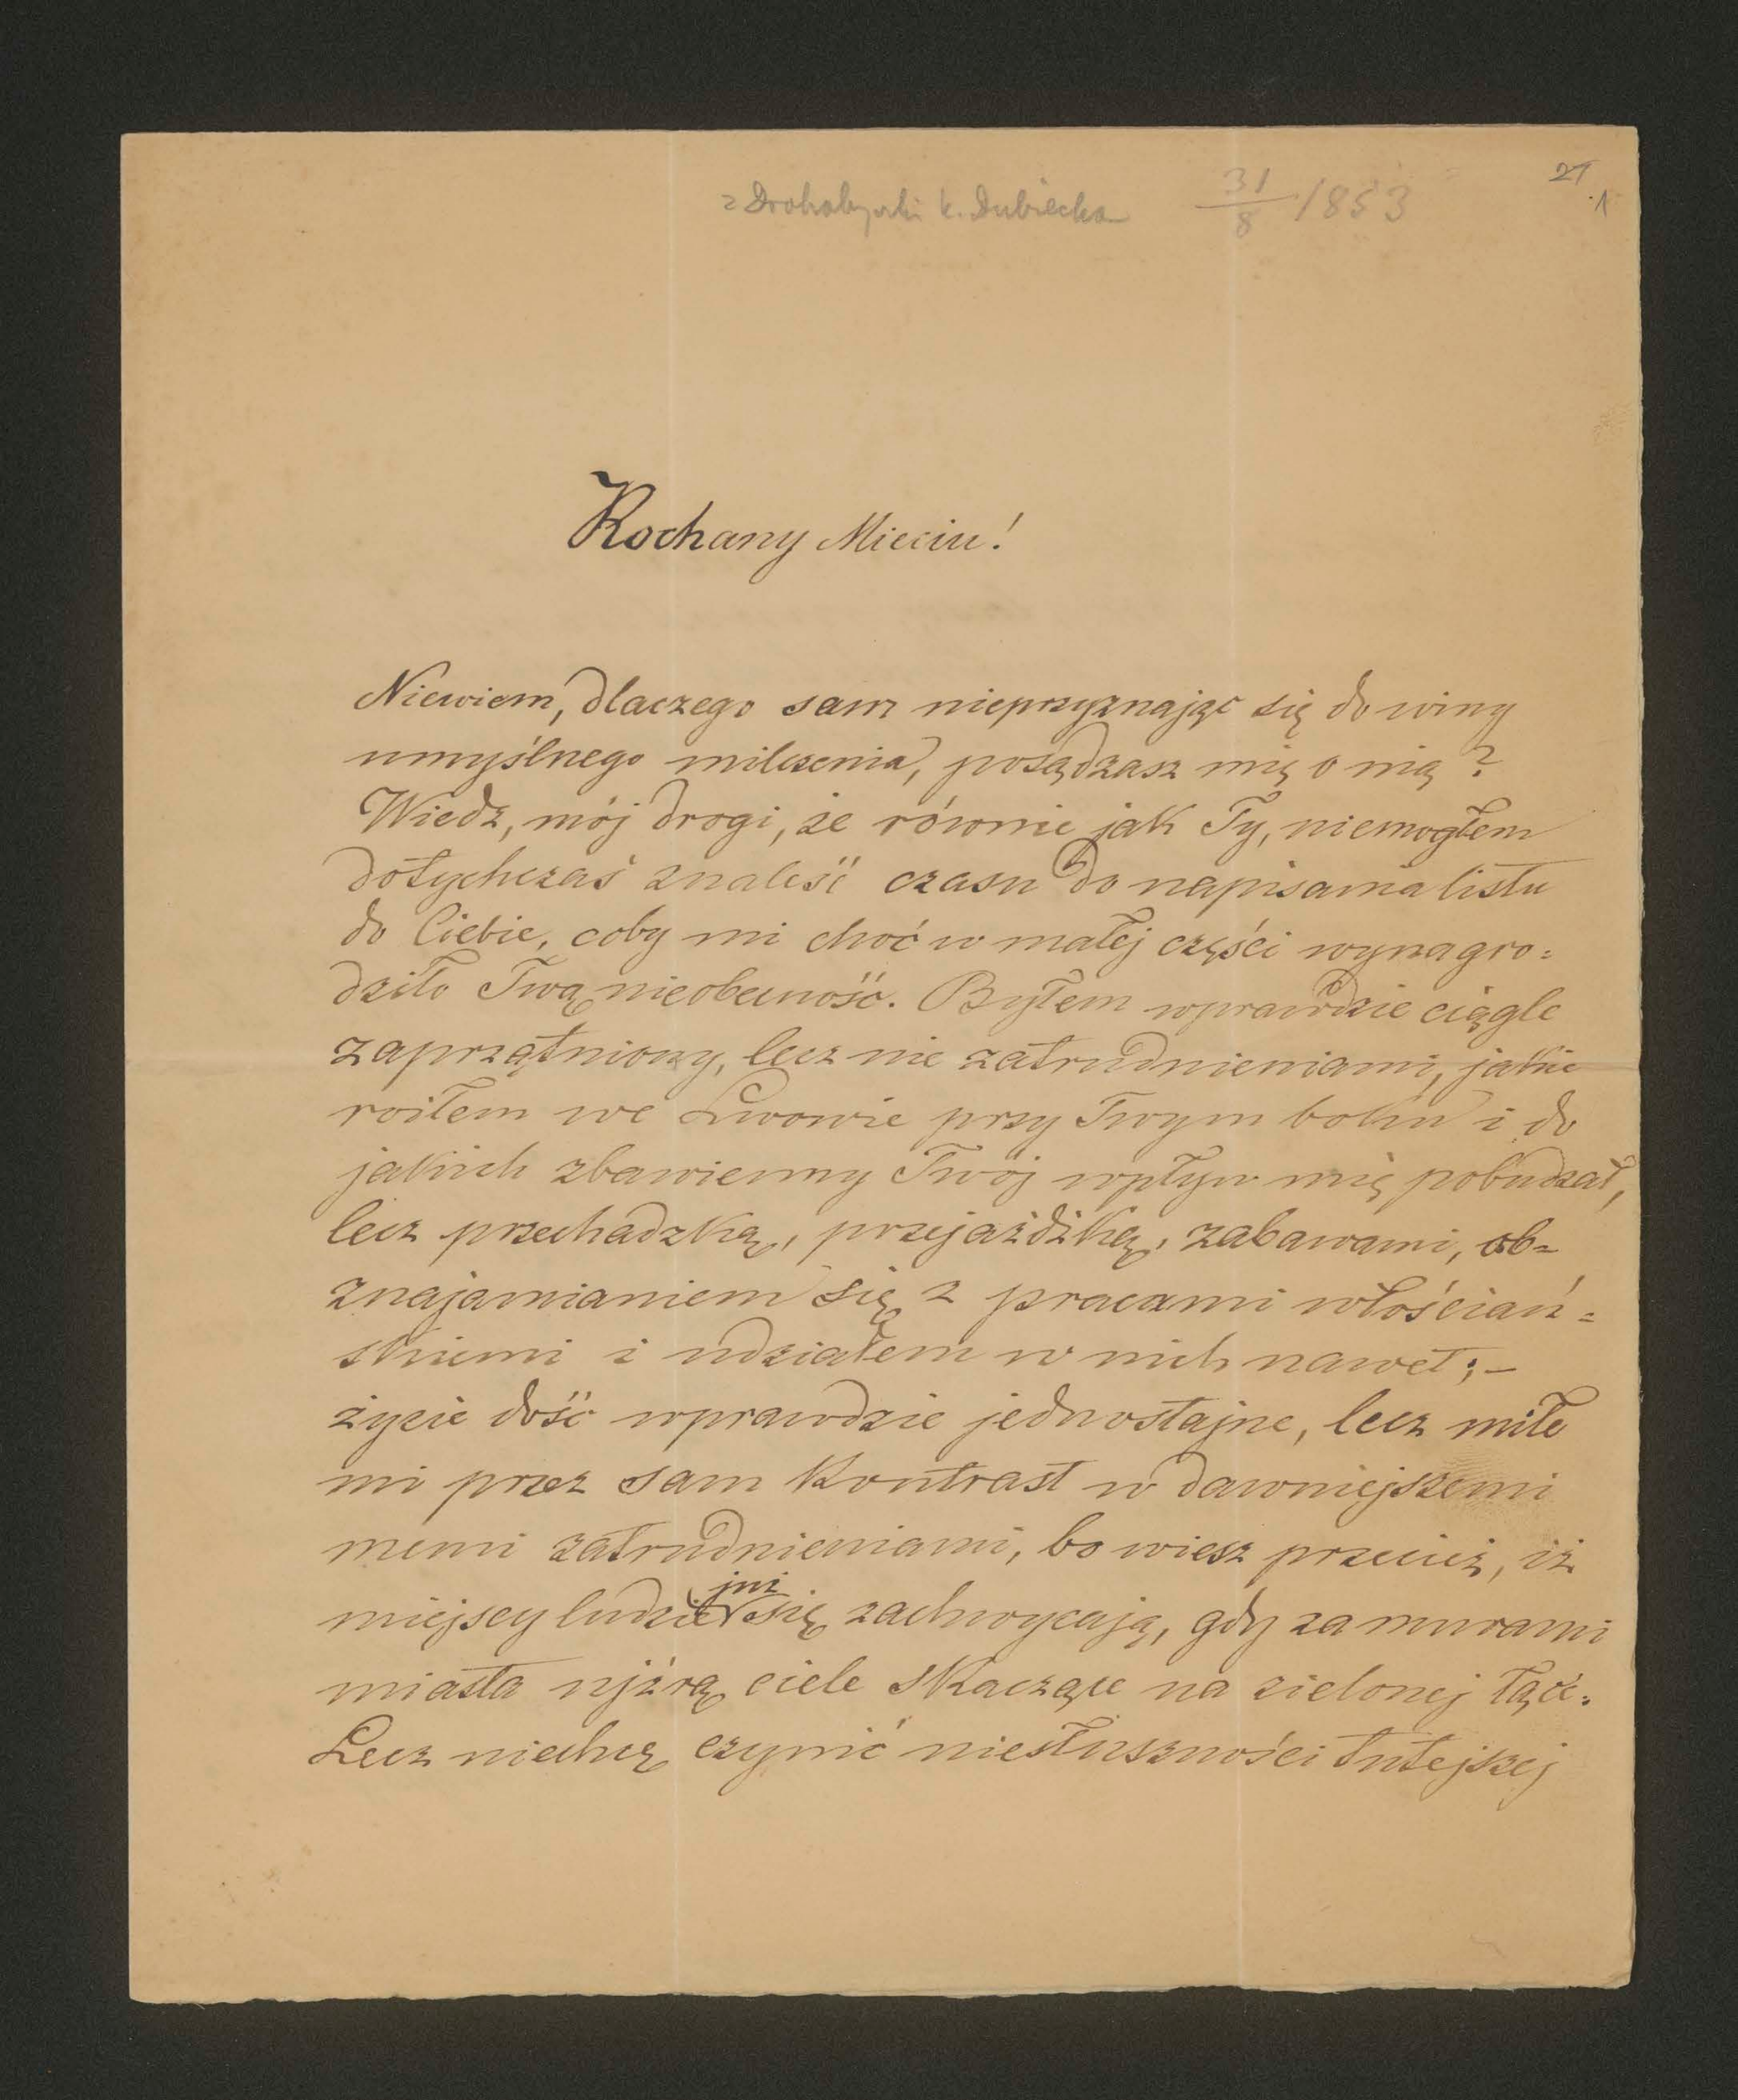 z Drohobyczki k. Dubiecka 31/8 1853
21
1
Kochany Mieciu!
Niewiem, dlaczego sam nieprzyznając się do winy
umyślnego milczenia, posądzasz mię o nią?
Wiedz, mój drogi, że równie jak Ty, niemogłem
dotychczas znaleść czasu do napisania listu
do Ciebie, coby mi choć w małej części wynagro=
dziło Twą nieobecność. Byłem wprawdzie ciągle
zaprzątniony, lecz nie zatrudnieniami, jakie
roiłem we Lwowie przy Twym boku i do
jakich zbawienny Twój wpływ mię pobudzał,
lecz przechadzką, przejażdżką, zabawami, ob=
znajamianiem się z pracami włościań=
skiemi i udziałem w nich nawet; –
życie dość wprawdzie jednostajne, lecz miłe
mi przez sam kontrast w dawniejszemi
memi zatrudnieniami, bo wiesz przecież, iż
miejscy ludzie już się zachwycają, gdy za murami
miasta ujźrą ciele skaczące na zielonej łące.
Lecz niechcę czynić niesłuszności tutejszej